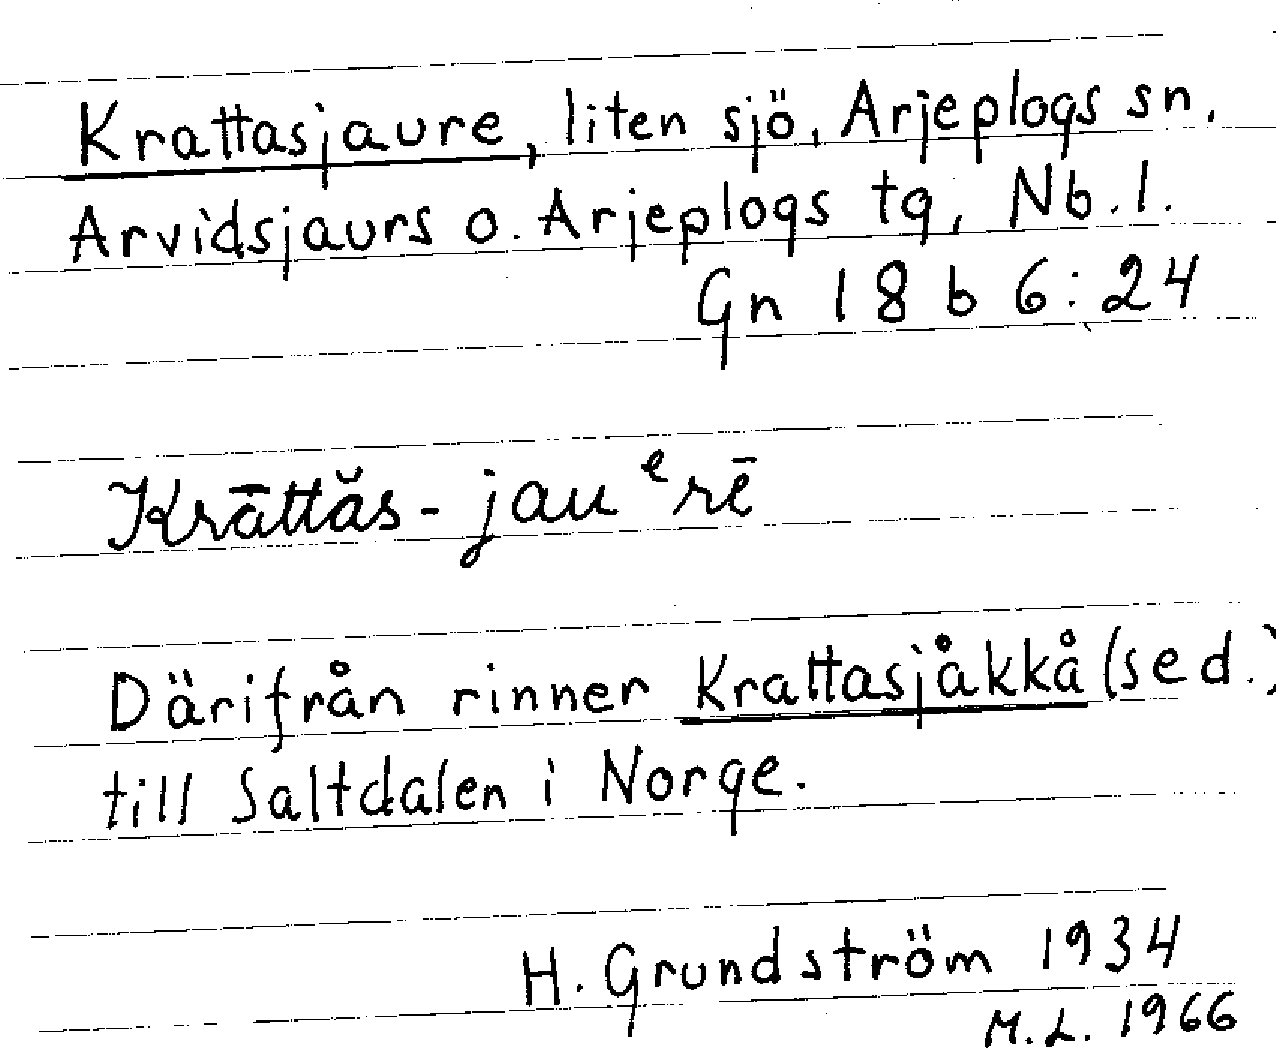 Krattasjaure, liten sjö, Arjeplogs sn,
Arvidsjaurs o. Arjeplogs tg, Nb.l.
Gn 18 b 6:24
Krāttăs-jauᵉrē
Därifrån rinner Krattasjåkkå (se d.)
till Saltdalen i Norge.
H. Grundström 1934
M.L. 1966